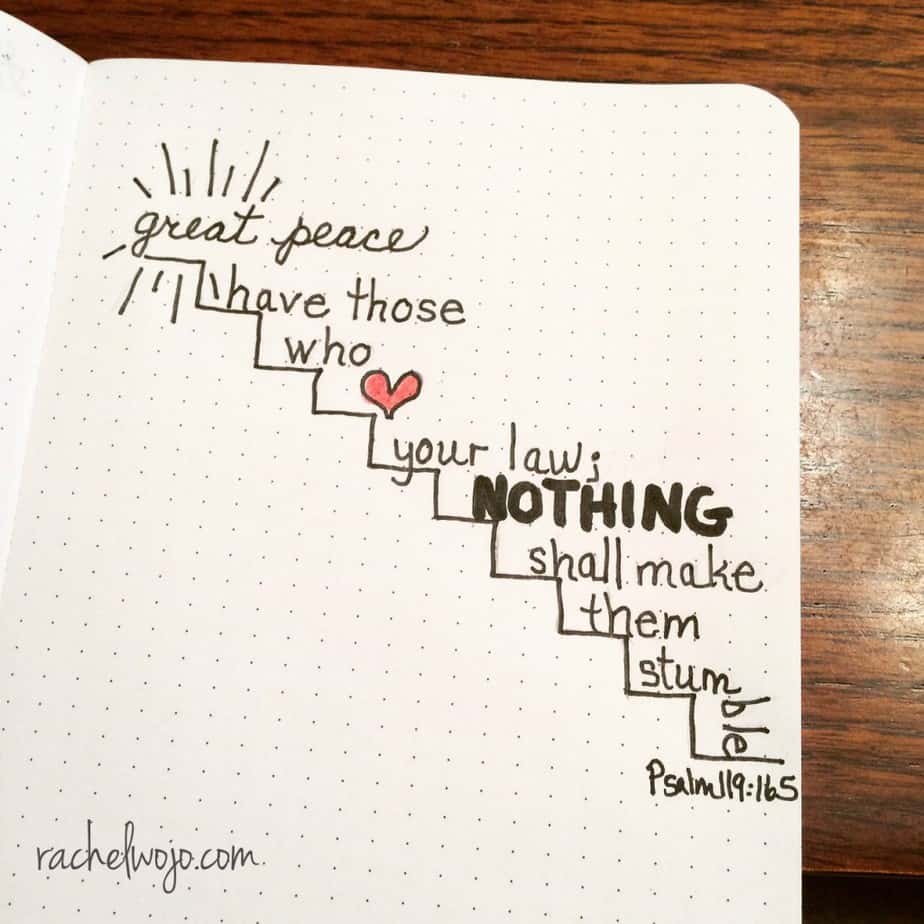 great peace
have those
who
your law;
NOTHING
shall make
them
stum
ble
Psalm 119:165
rachelwojo.com